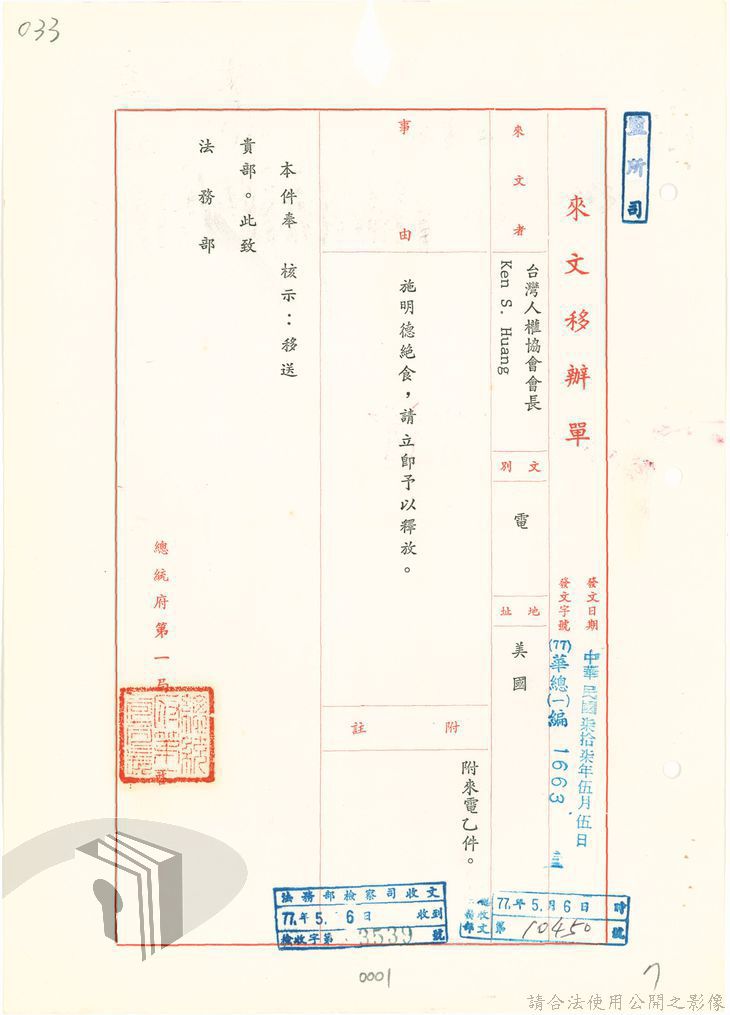 033
監所司
來文移辦單
發文日期
中華民國柒拾柒年伍月伍日
發文字號
(77)華總(一)編 1663
來文者
台灣人權協會會長
Ken S. Huang
文別
電
地址
美國
事由
施明德絶食，請立即予以釋放。
附註
附來電乙件。
本件奉 核示：移送
貴部。此致
法務部
總統府第一局
法務部檢察司收文
77年5.6日 收到
檢收字第 3539 號
77年5月6日 時
第 10450 號
0001
7
請合法使用公開之影像